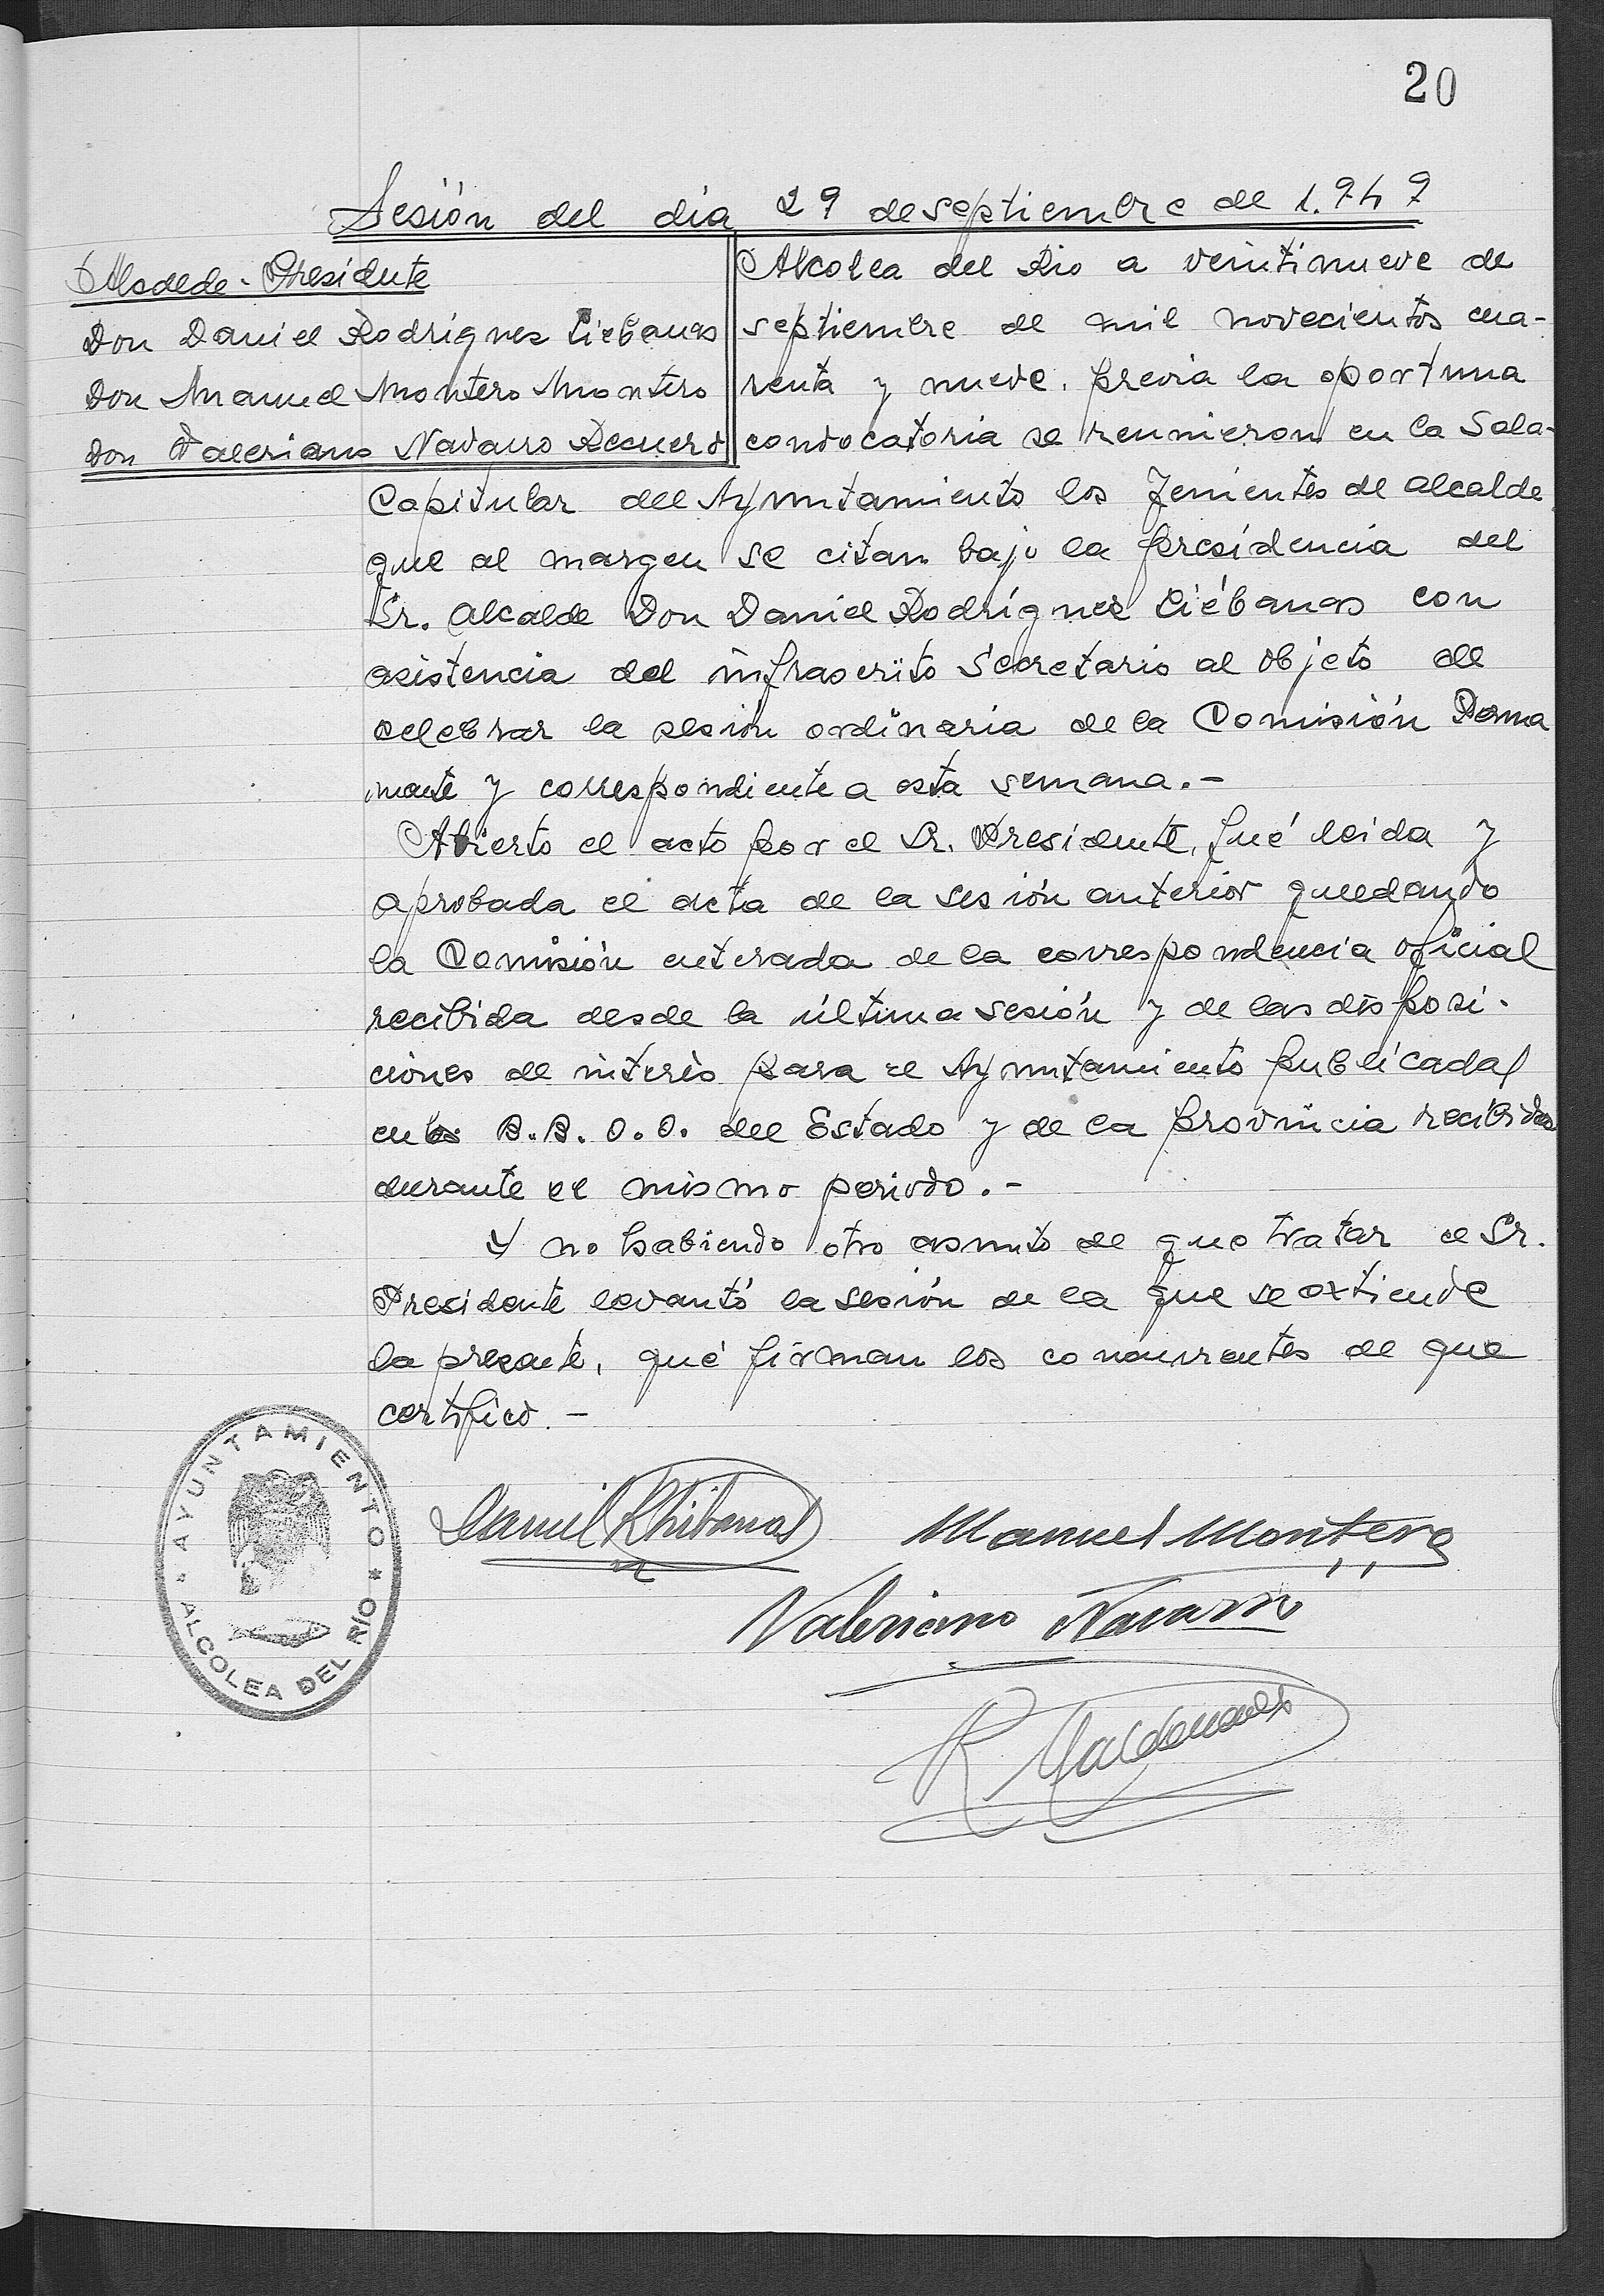 20
Sesión del día 29 de septiembre de 1.949
Alcalde-Presidente
Don Daniel Rodríguez Liebanas
Don Manuel Montero Montero
Don Valeriano Navarro Recuero
Alcolea del Rio a veintinueve de
septiembre de mil novecientos cua-
renta y nueve, previa la oportuna
convocatoria se reunieron en la Sala-
Capitular del Ayuntamiento los Tenientes de alcalde
que al margen se citan bajo la presidencia del
Sr. Alcalde Don Daniel Rodríguez Liébanas con
asistencia del infrascrito Secretario al objeto de
celebrar la sesión ordinaria de la Comisión Perma
nente y correspondiente a esta semana.-
Abierto el acto por el Sr. Presidente, fué leida y
aprobada el acta de la sesión anterior quedando
la Comisión enterada de la correspondencia oficial
recibida desde la última sesión y de las disposi-
ciones de interés para el Ayuntamiento publicadas
en los B.B. O.O. del Estado y de la provincia recibidos
durante el mismo periodo.-
Y no habiendo otro asunto de que tratar el Sr.
Presidente levantó la sesión de la que se extiende
la presente, que firman los concurrentes de que
certifico.-
AYUNTAMIENTO
* ALCOLEA DEL RIO *
Daniel R Liebanas
Manuel Montero
Valeriano Navarro